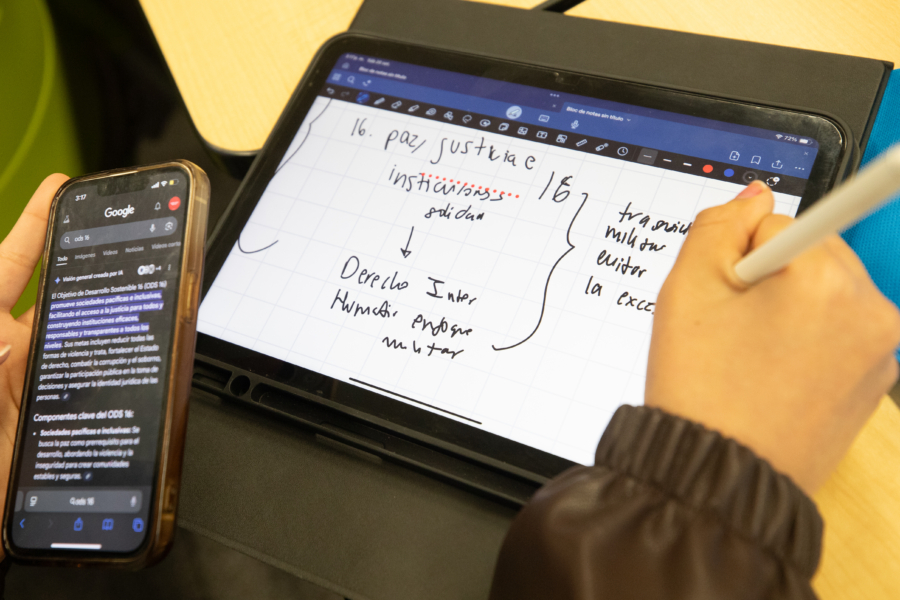 3:17
Google
ods 16
Todo Imágenes Videos Noticias Videos cortos
Visión general creada por IA
El Objetivo de Desarrollo Sostenible 16 (ODS 16)
promueve sociedades pacíficas e inclusivas,
facilitando el acceso a la justicia para todos y
construyendo instituciones eficaces,
responsables y transparentes a todos los
niveles. Sus metas incluyen reducir todas las
formas de violencia y trata, fortalecer el Estado
de derecho, combatir la corrupción y el soborno,
garantizar la participación pública en la toma de
decisiones y asegurar la identidad jurídica de las
personas.
Componentes clave del ODS 16:
Sociedades pacíficas e inclusivas: Se
busca la paz como prerrequisito para el
desarrollo, abordando la violencia y la
inseguridad para crear comunidades
estables y seguras.
ods 16
Bloc de notas sin título
Bloc de notas sin título
72%
16. paz, justicia e
16
Derecho Inter
enfoque
militar
militar
evitar
la